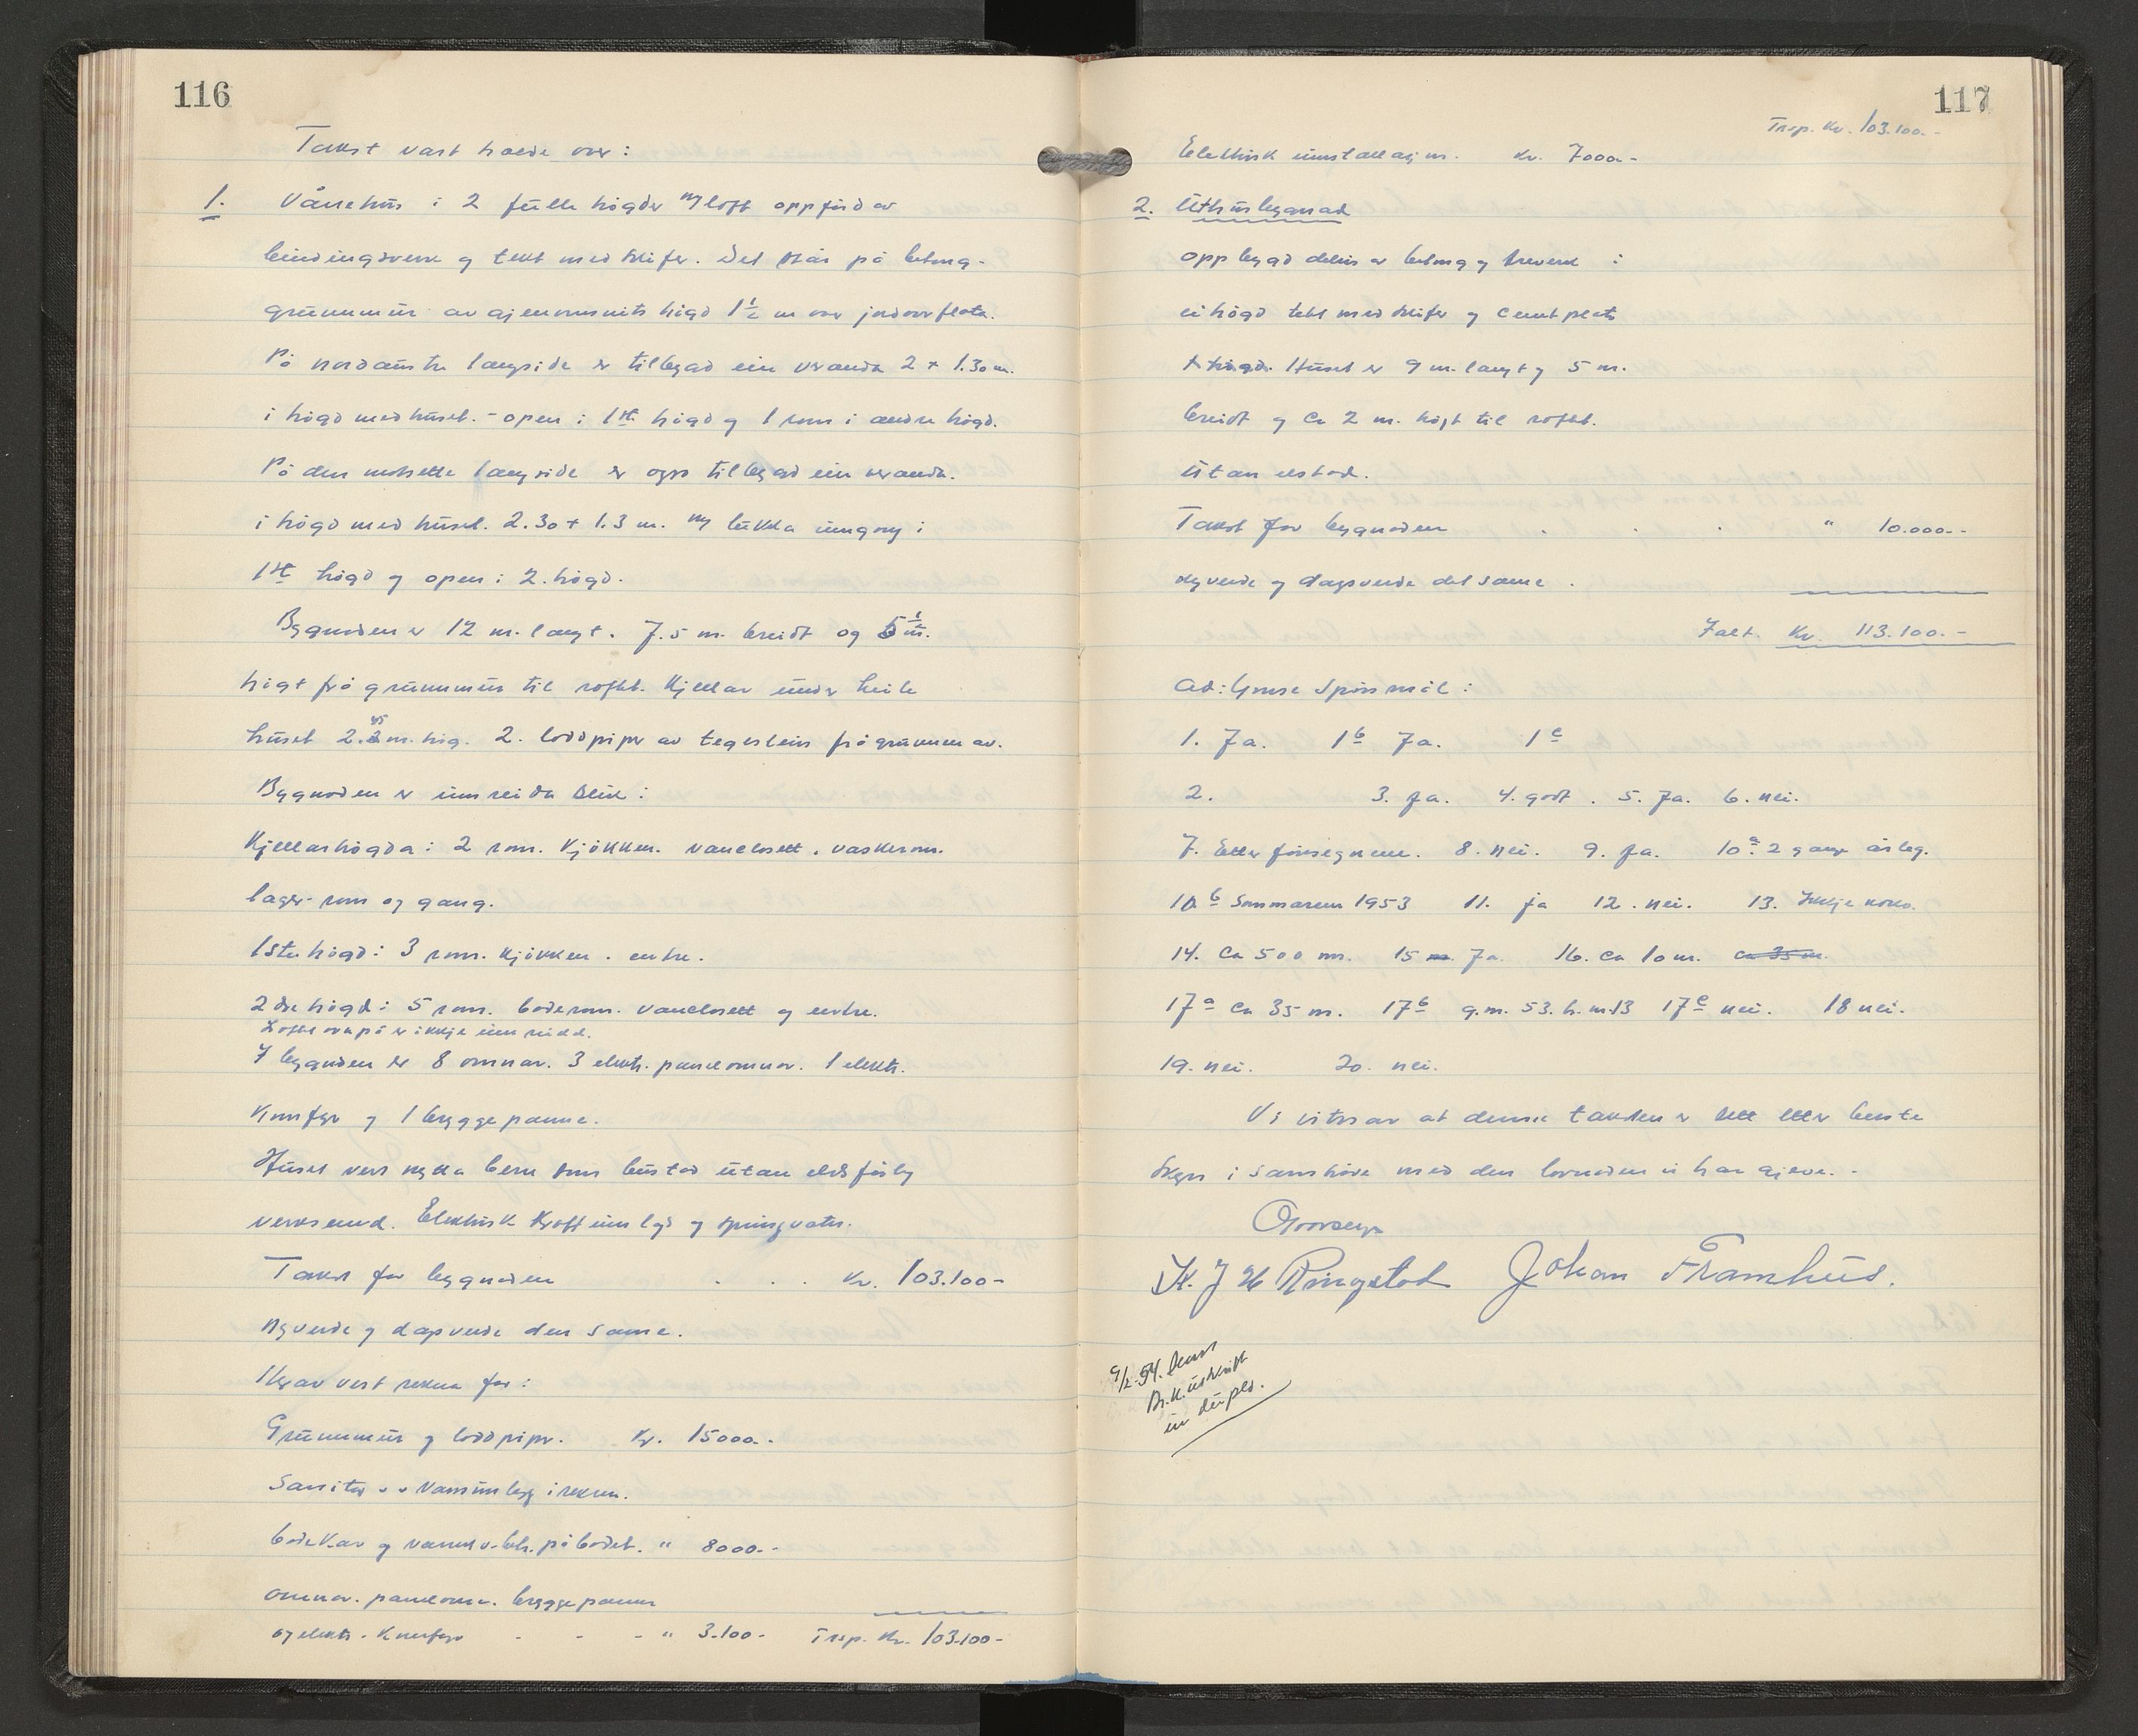 116
Takst vart halde over:
1. Vånehus i 2 fulle högder og loft oppförd av
bindingsverk og tekt med skifer. Det står på betong-
grunnmur av gjennomsnits högd 1½ m over jordoverflata.
På nordaustre langside er tilbygd ein veranda 2 + 1.30 m.
i högd med huset. - open i 1ste högd og 1 rom i andre högd.
På den motsette langside er ogso tilbygd ein veranda.
i högd med huset. 2.30 + 1.3 m. og lukka inngang i
1ste högd og open i 2. högd.
Bygnaden er 12 m. langt. 7.5 m. breidt og 5½ m.
högt frå grunnmur til röstet. Kjellar under heile
huset 2. m. hög. 2. loddpiper av teglstein frå grunnen av.
Bygnaden er innreida slik:
Kjellarhögda: 2 rom. Kjökken. vanclosett. vaskerom.
lager-rom og gang.
1ste högd: 3 rom. Kjökken. entre.
2dre högd: 5 rom. baderom. vanclosett og entre.
Loftet ovapå er ikkje innreidd.
I bygnaden er 8 omnar. 3 elektr. panelomnar. 1 elektr.
Komfyr og 1 bryggepanne.
Huset vert nytta berre som bustad utan eldsfårleg
verksemd. Elektrisk Kraft innlagd og springvatn.
Takst for bygnaden . . . Kr. 103.100-
Nyverde og dagsverde den same.
Herav vert rekna for:
Grunnmur og loddpiper. Kr. 15000.-
Sanitær innlegg irekna.
badekar og på badet. " 8000.-
Omnar. panelomn. bryggepanner
og elektr. Komfyr - - - " 3.100- Trsp. Kr. 103.100-
117
Trsp. Kr. 103.100.-
Elektrisk innstallasjon. Kr. 7000.-
2. Uthusbygnad
oppbygd delvis av betong og treverk i
ei högd tekt med skifer og cementplater
Huset er 9 m. langt og 5 m.
breidt og Ca 2 m. högt til röstet.
Utan eldstad.
Takst for bygnaden . . . " 10.000.-
Nyverde og dagsverde det same.
Ialt. Kr. 113.100.-
Ad: Ymse Spörsmål:
1. Ja. 1b Ja. 1c
2. 3. Ja. 4. godt. 5. Ja. 6. nei.
7. Etter föresegnene. 8. nei. 9. Ja. 10a. 2 gange årleg.
10b Sommaren 1953 11. ja 12. nei. 13. Ikkje noko.
14. Ca 500 m. 15 Ja. 16. Ca 10 m. ca 35 m.
17a Ca 35 m. 17b g.m. 53. h. m. 13 17c nei. 18 nei.
19. nei. 20. nei.
Vi vitnar at denne taksten er sett etter beste
skyn i samhöve med den lovnaden vi har gjeve. -
K. J. Ringstad Johan Framhus.
9/2-54.
Br.K. utskrift
in duplo.